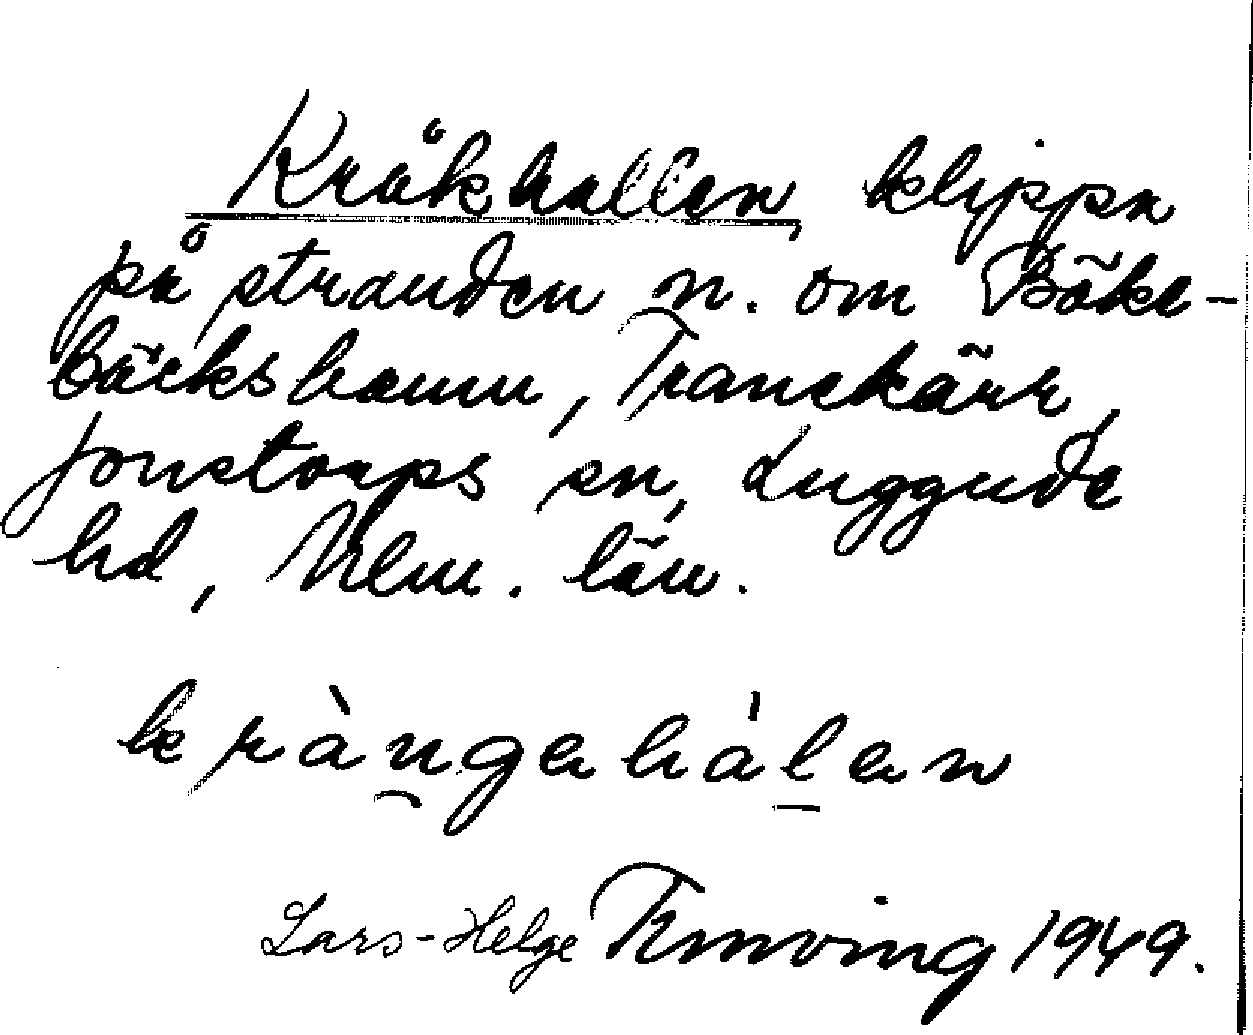 Kråkhallen klippa
på stranden n. om Böke-
bäckshamn, Tranekärr,
Jonstorps sn, Luggude
hd, Mlm. län.
kràngahàlan
Lars-Helge 1949.